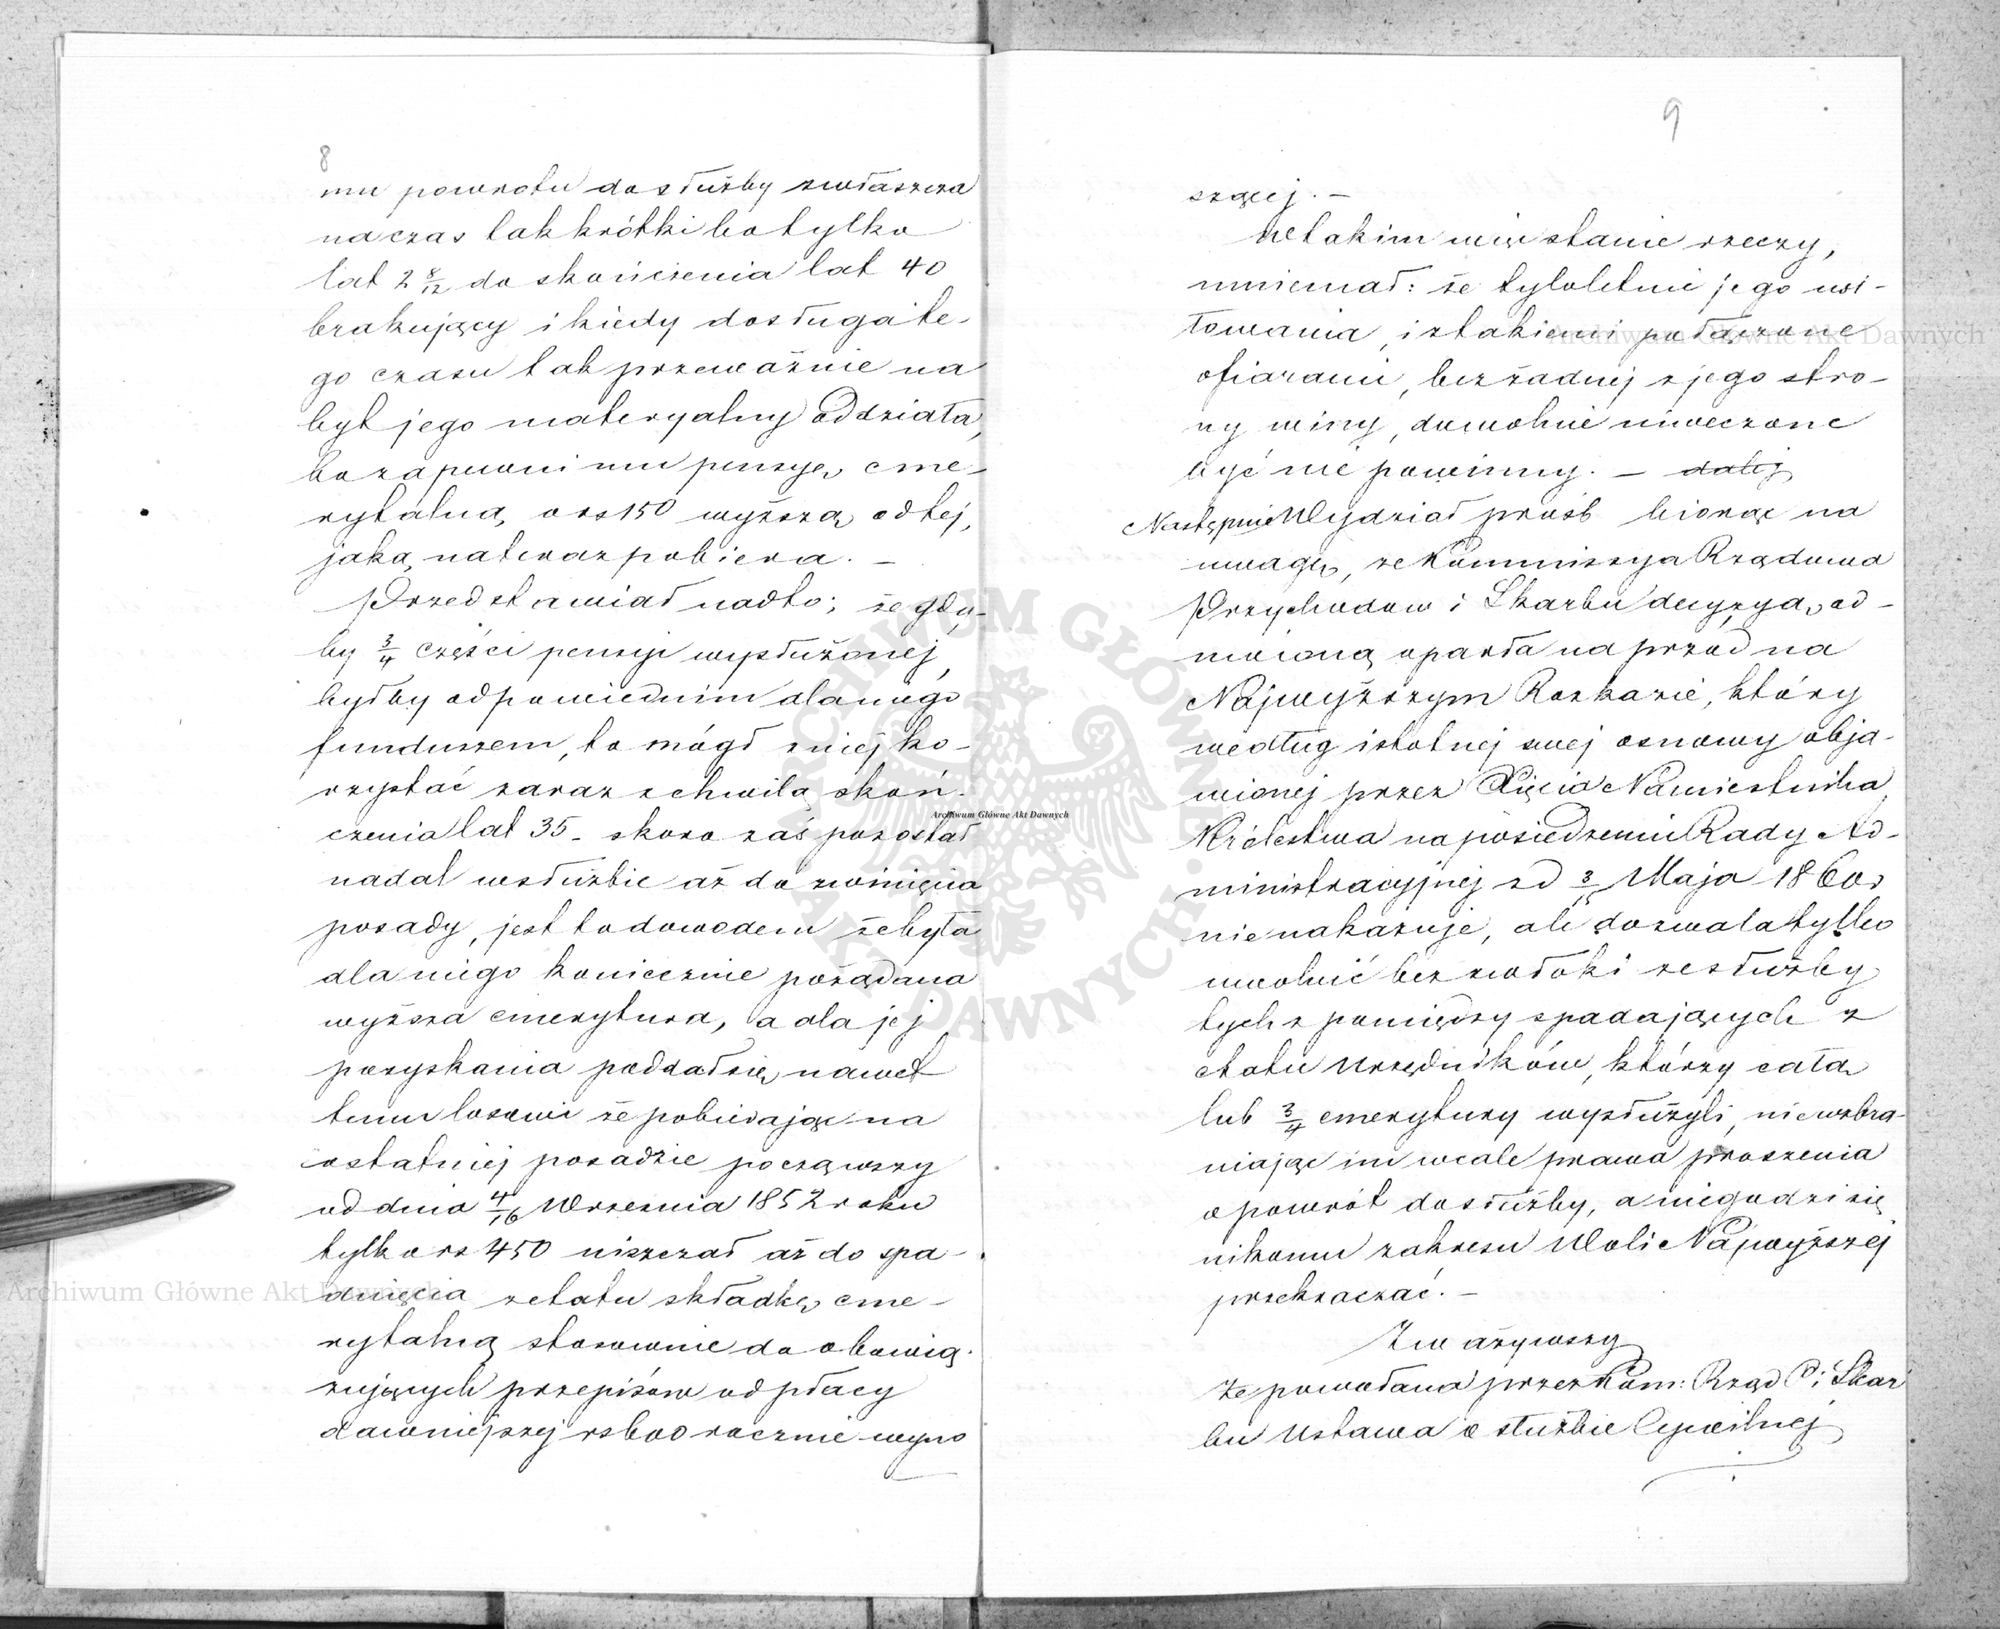 8
mu powrotu do służby zwłaszcza
na czas tak krótki bo tylko
lat 2 8/12 do skończenia lat 40
brakujący i kiedy dosługa te-
go czasu tak przeważnie na
byt jego materyalny oddziała,
bo zapewni mu pensyę eme-
rytalną o rs 150 wyższą od tej,
jaką na teraz pobiera. —
Przedstawiał nadto; że gdy-
by 3/4 części pensyi wysłużonej,
byłby odpowiednim dla niego
funduszem, to mógł z niej ko-
rzystać zaraz z chwilą skoń-
czenia lat 35 - skoro zaś pozostał
nadal w służbie aż do zwinięcia
posady, jest to dowodem że była
dla niego koniecznie pożądana
wyższa emerytura, a dla jej
pozyskania poddał się nawet
temu losowi że pobierając na
ostatniej posadzie począwszy
od dnia 4/16 Września 1852 roku
tylko rs 450 uiszczał aż do spa-
dnięcia z etatu składkę eme-
rytalną stosownie do obowią-
zujących przepisów od płacy
dawniejszej rs 600 rocznie wyno
9
szącej. —
W takim więc stanie rzeczy,
mniemał: że tyloletnie jego usi-
łowania, i z takiemi połączone
ofiarami, bez żadnej z jego stro-
ny winy, dowolnie niweczone
być nie powinny. — dalej
Następnie Wydział próśb biorąc na
uwagę, że Kommissya Rządowa
Przychodów i Skarbu decyzyą od-
mowną oparła naprzód na
Najwyższym Rozkazie, który
według istotnej swej osnowy obja-
wionej przez Xięcia Namiestnika
Królestwa na posiedzeniu Rady Ad-
ministracyjnej z d 3/15 Maja 1860 r
nie nakazuje, ale dozwala tylko
uwolnić bez zwłoki ze służby
tych z pomiędzy spadających z
etatu Urzędników, którzy całą
lub 3/4 emerytury wysłużyli, nie wzbra-
niając im wcale prawa proszenia
o powrót do służby, a niegodzi się
nikomu zakresu Woli Najwyższej
przekraczać. —
Zważywszy
Że powołana przez Kom: Rząd P i Skar
bu Ustawa o służbie Cywilnej
Archiwum Główne Akt Dawnych
Archiwum Główne Akt Dawnych
Archiwum Główne Akt Dawnych
ARCHIWUM GŁÓWNE AKT DAWNYCH